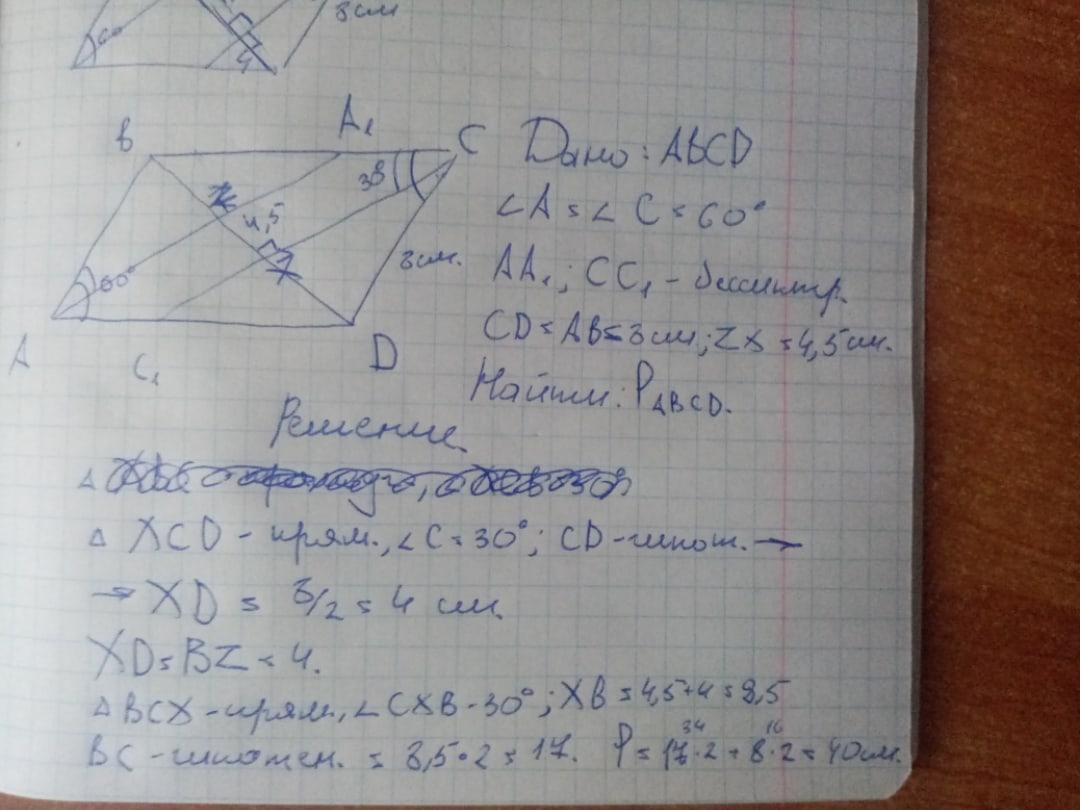 60°
4
8см
B
A₁
C
30
4,5
X
8см.
60°
A
C₁
D
Дано: ABCD
∠A = ∠C = 60°
AA₁; CC₁ - биссектр.
CD = AB = 8 см; ZX = 4,5 см.
Найти: P ABCD.
Решение
△ XCD - прям., ∠C = 30°; CD - гипот. →
→ XD = 8/2 = 4 см.
XD = BZ = 4.
△ BCX - прям, ∠CXB - 30°; XB = 4,5+4 = 8,5
BC - гипотен. = 8,5·2 = 17. P = 17·2 + 8·2 = 40 см.
34 16